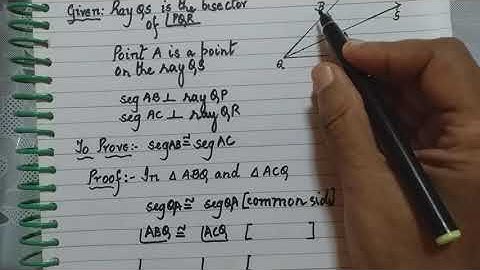 Given: Ray QS is the bisector
of ∠PQR
Point A is a point
on the ray QS
seg AB ⊥ ray QP
seg AC ⊥ ray QR
To Prove:- seg AB ≅ seg AC
Proof:- In △ ABQ and △ ACQ
seg QA ≅ seg QA [common side]
∠ABQ ≅ ∠ACQ [ ]
∠ ∠ [
B
S
Q